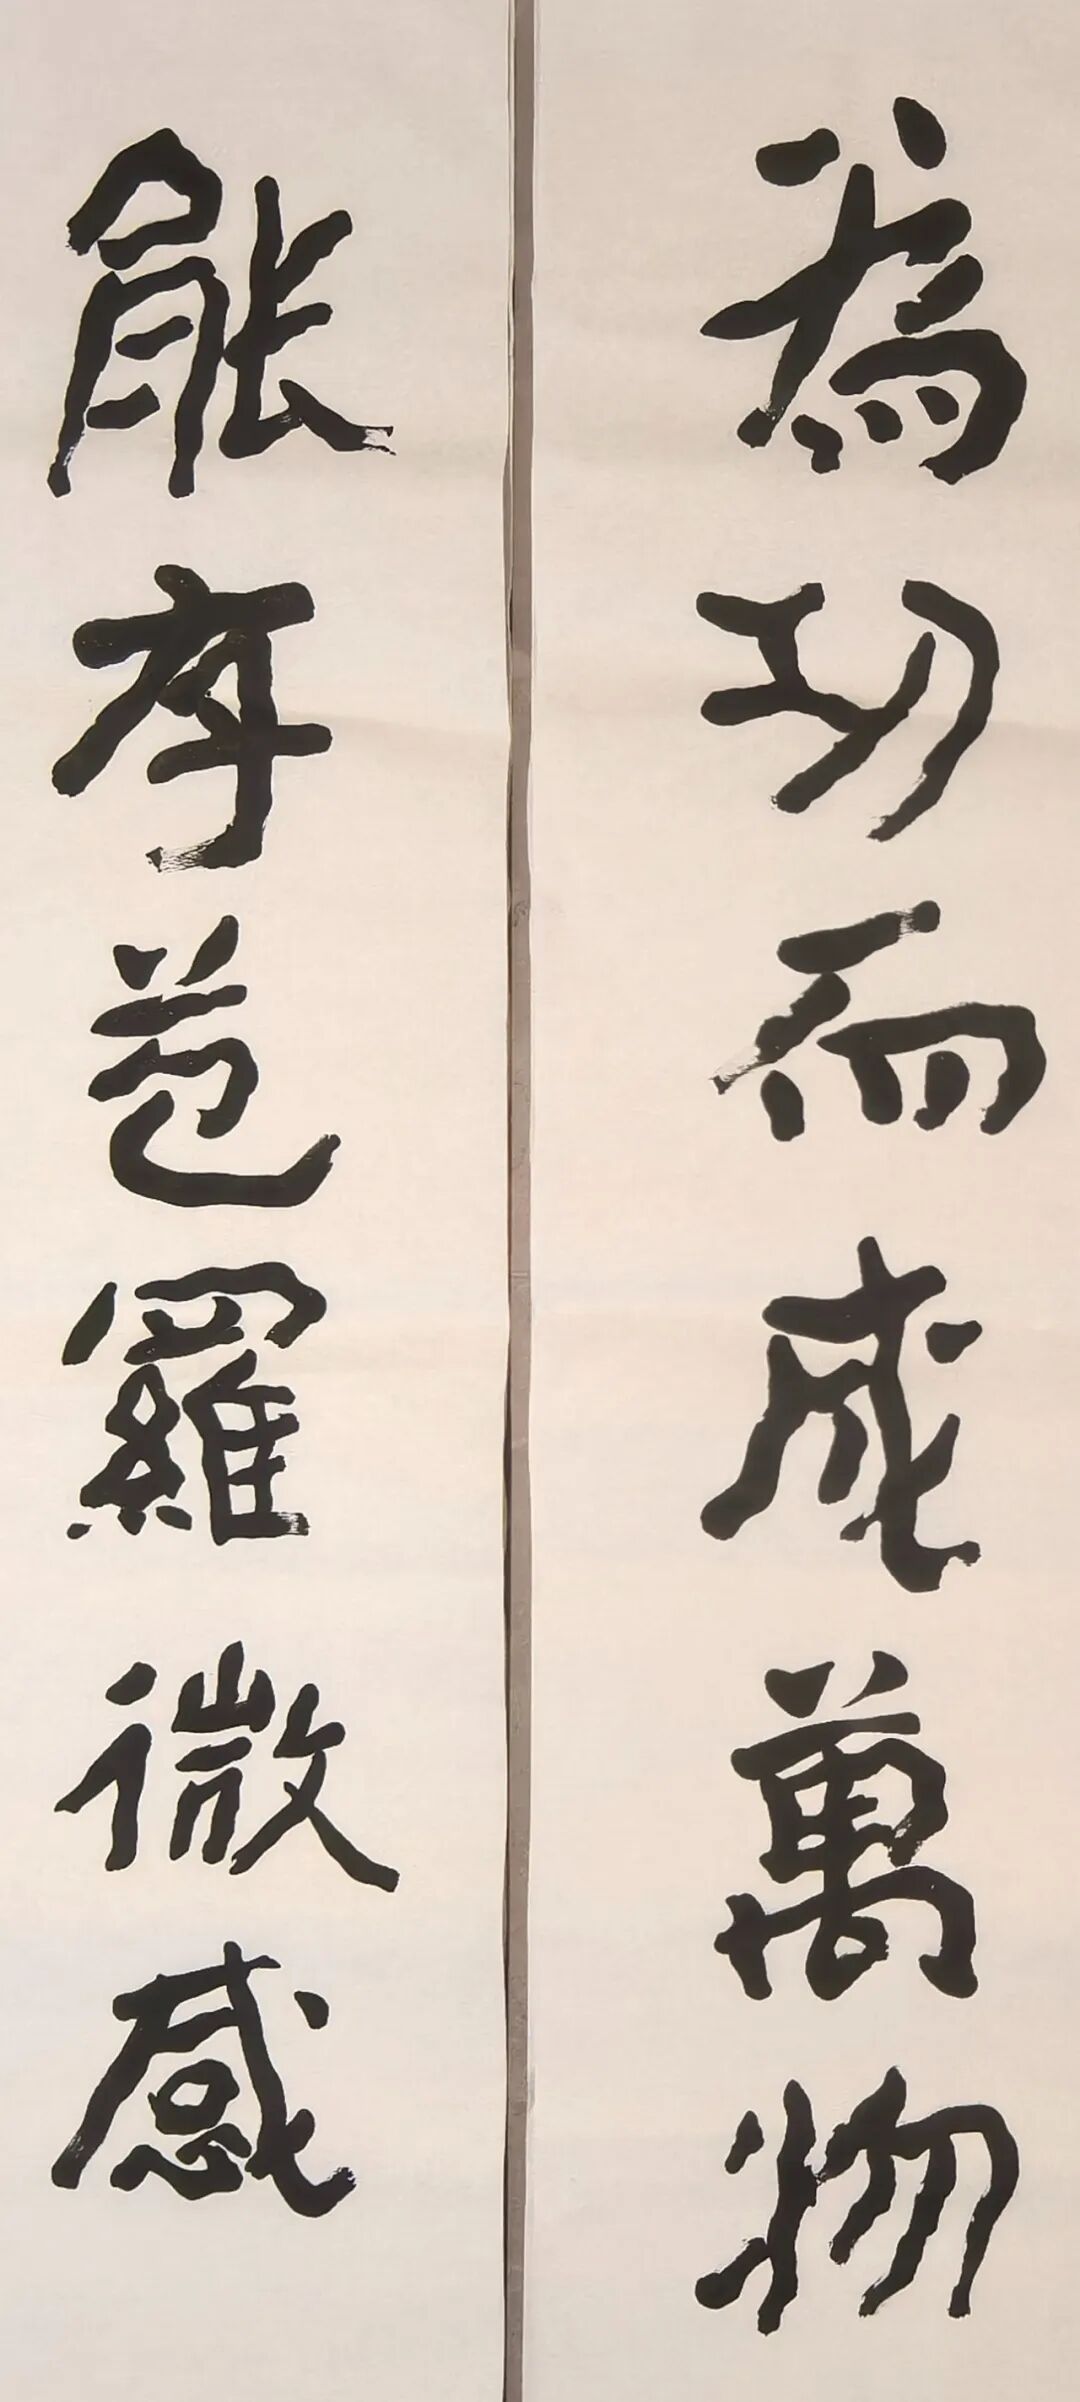 為功而成萬物
能存苞羅微感